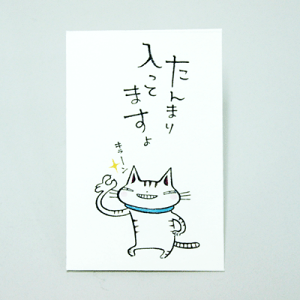 たんまり
入ってますよ
キラーン